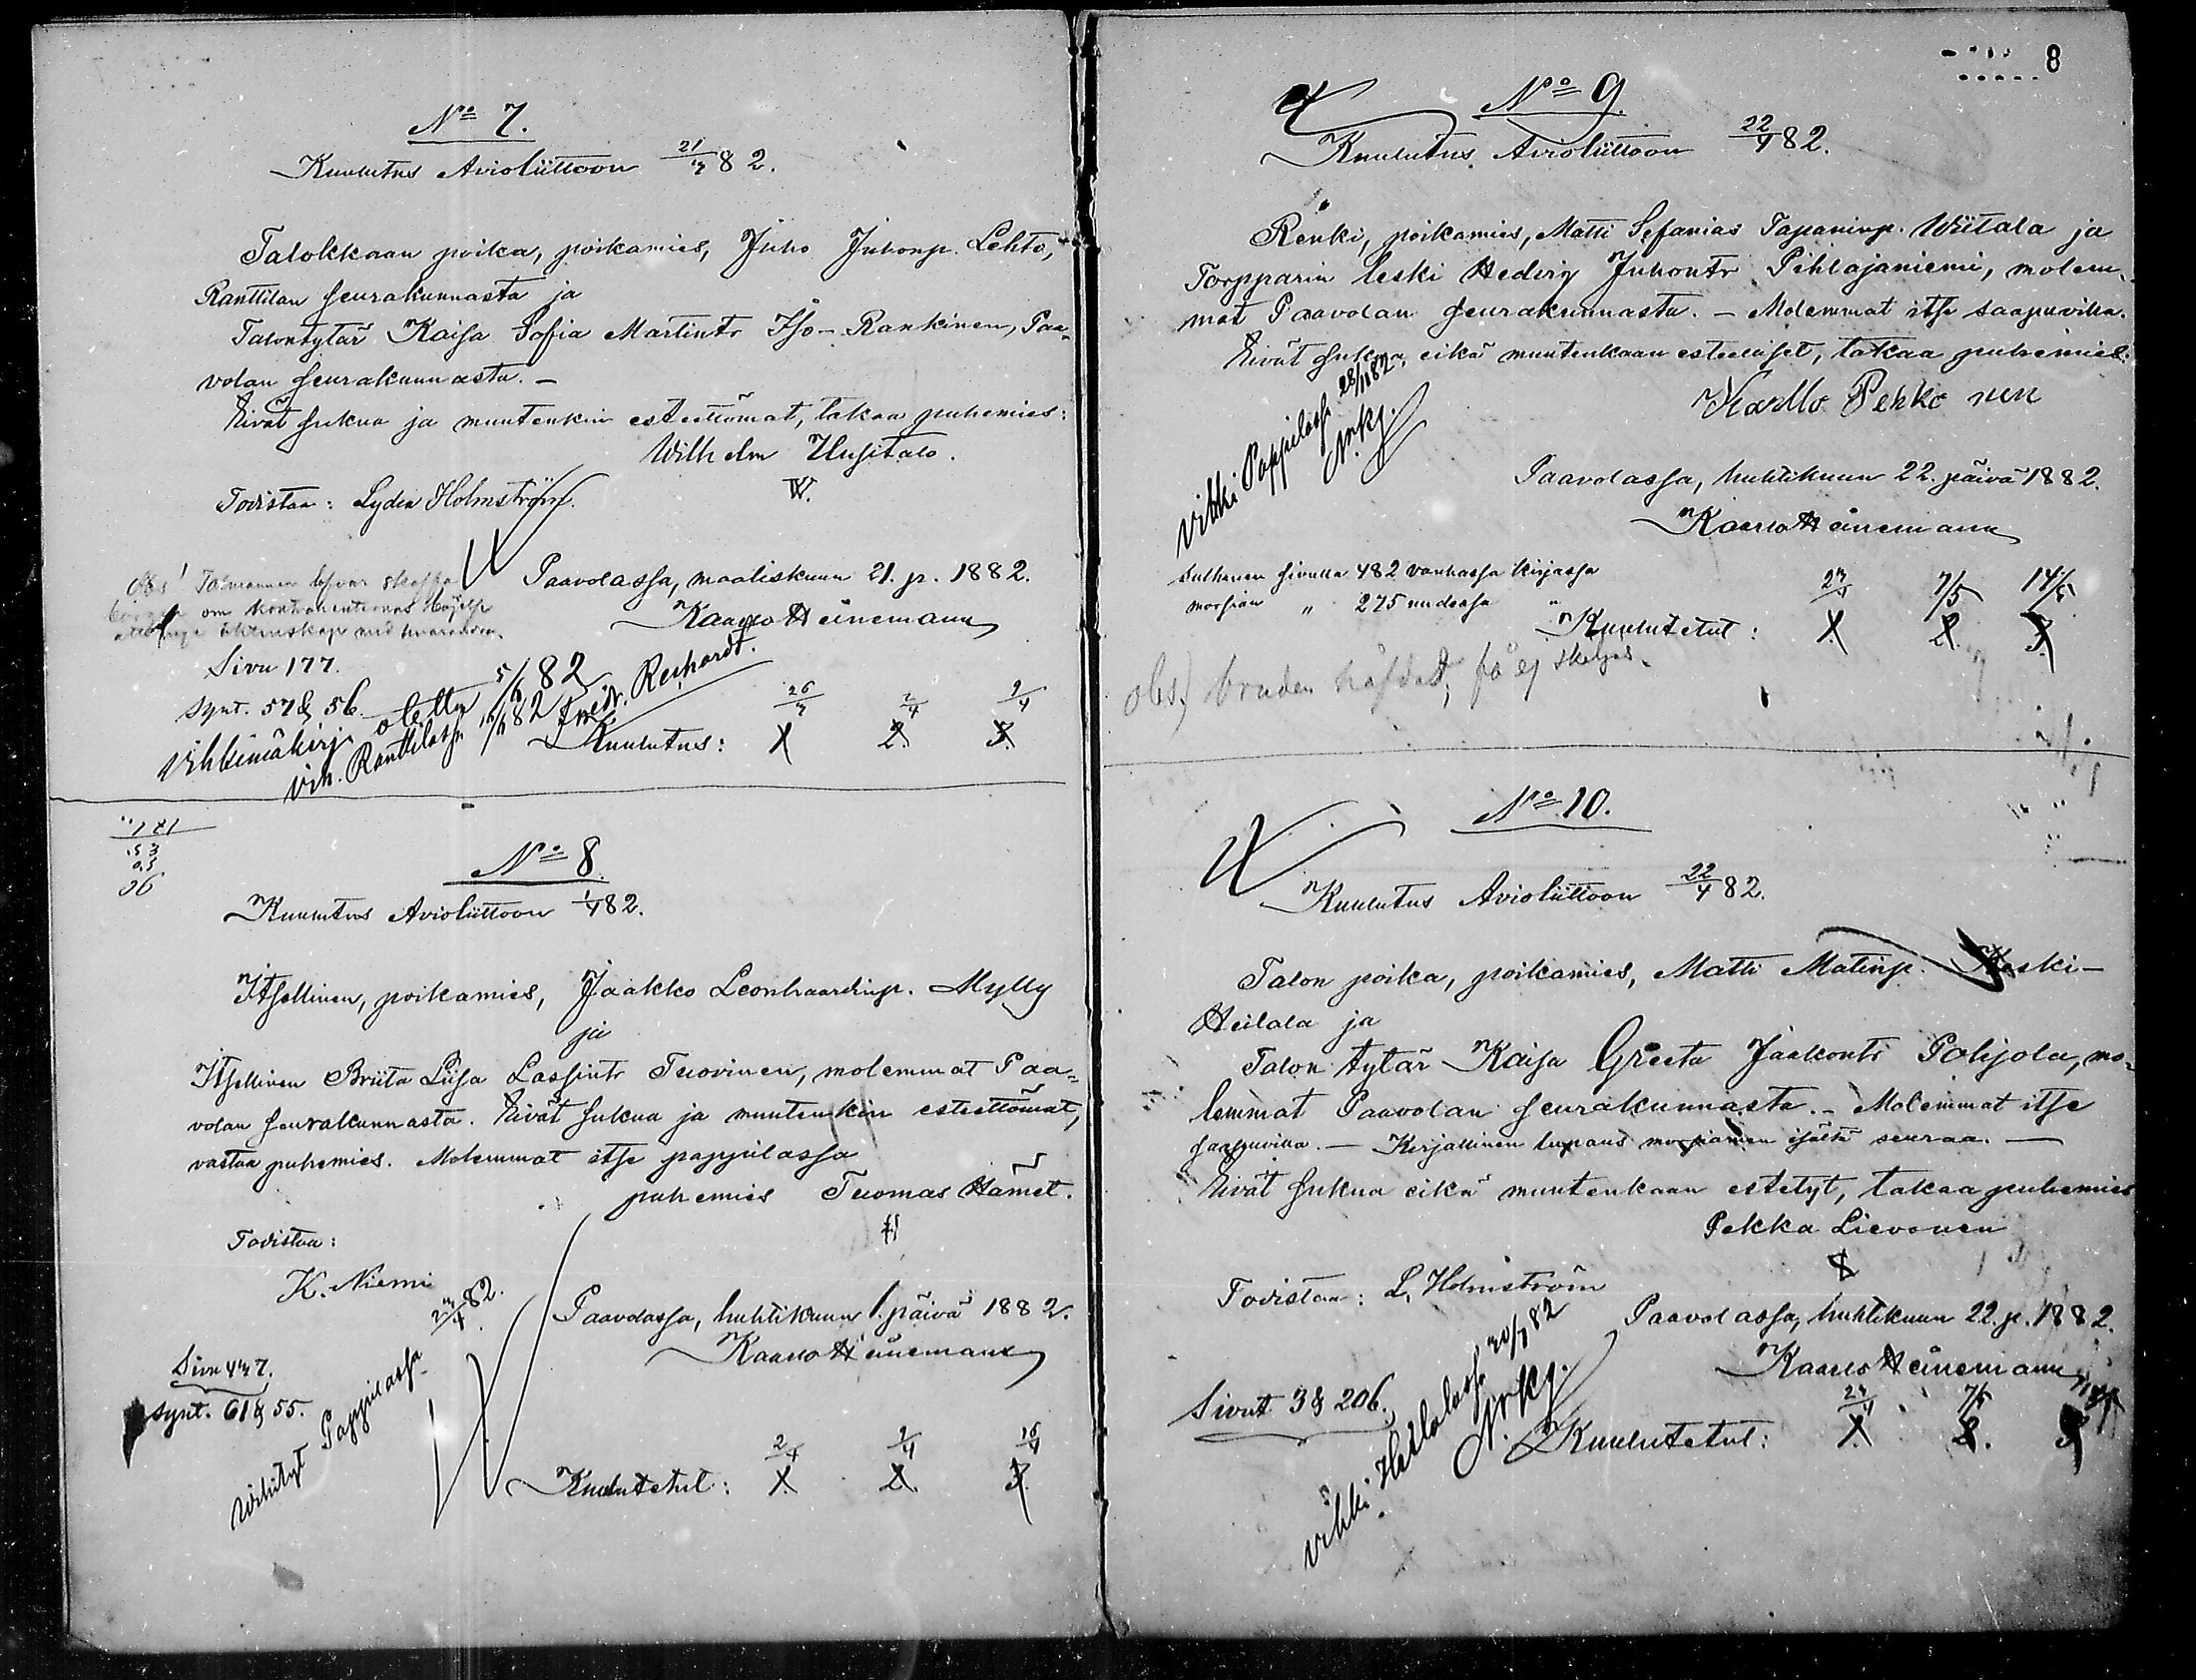 No 7.
Kuulutus Avioliittoon 21/3 82.
Talokkaan poika, poikamies, Juho Juhonp. Lehto,
Ranttilan seurakunnasta ja
Talontytär Kaisa Sofia Martintr Iso-Rankinen, Paa-
volan seurakunnasta. —
Eivät sukua ja muutenkin esteettömät, takaa puhemies:
Wilhelm Uusitalo.
Todistaa: Lydia Holmström.
W.
Paavolassa, maaliskuun 21. p. 1882.
Kaarlo Heinemann
Obs!
om kontrahenternas
Sivu 177.
Synt. 57 & 56.
Vihkimäkirja otettu 5/6 82
Vih. Ranttilassa 82 Fredr. Reihardt.
26/3 2/4 9/4
Kuulutus: 1 2. 3.
No 8.
Kuulutus Avioliittoon 1/4 82.
Itsellinen, poikamies, Jaakko Leonhaardinp. Mylly
ja
Itsellinen Briita Liisa Lassintr Tuovinen, molemmat Paa-
volan seurakunnasta. Eivät sukua ja muutenkin esteettömät,
vastaa puhemies. Molemmat itse pappilassa
puhemies Tuomas Hämet.
Todistaa:
K. Niemi
Paavolassa, huhtikuun 1. päivä 1882.
Kaarlo Heinemann
Sivu 437.
Synt. 61 & 55.
Vihityt Pappilassa 23/4 82.
2/4 9/4 16/4
Kuulutetut: 1. 2. 3.
8
No 9.
Kuulutus Avioliittoon 22/4 82.
Renki, poikamies, Matti Sefanias Tapaninp. Wiitala ja
Torpparin leski Hedvig Juhontr Pihlajaniemi, molem-
mat Paavolan seurakunnasta. — Molemmat itse saapuvilla.
Eivät sukua, eikä muutenkaan esteelliset, takaa puhemies:
Kaarllo Pehkonen
Vihki Pappilassa 28/11 82.
Paavolassa, huhtikuun 22. päivä 1882.
Kaarlo Heinemann
Sulhanen sivulla 482 vanhassa kirjassa
morsian " 275 uudessa "
23/4 7/5 14/5
Kuulutetut: 1. 2. 3.
obs.) bruden häfdad, få ej skeljas.
No 10.
Kuulutus Avioliittoon 22/4 82.
Talon poika, poikamies, Matti Matinp. Keski-
Heilala ja
Talon tytär Kaisa Greeta Jaakontr Pohjola, mo-
lemmat Paavolan seurakunnasta. — Molemmat itse
saapuvilla. — Kirjallinen lupaus morsiamen isältä seuraa. —
Eivät sukua eikä muutenkaan estetyt, takaa puhemies
Pekka Lievonen
Todistaa: L. Holmström
Paavolassa, huhtikuun 22. p. 1882.
Kaarlo Heinemann
Sivut 3 & 206.
Vihki Heilalassa 82
23/4 7/5 14/5
Kuulutetut: 1. 2. 3